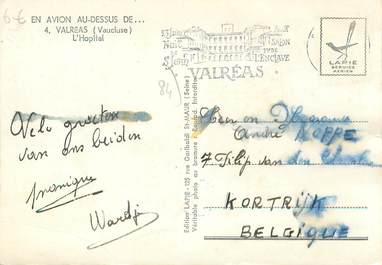 6€
EN AVION AU-DESSUS DE...
4. VALREAS (Vaucluse)
L'Hopital
SALON
DE
L'ENCLAVE
VALRÉAS
LAPIE
SERVICE
AERIEN
84
Edition LAPIE - 125 rue Garibaldi St-MAUR (Seine)
Véritable photo au bromure Interdite
Vele groeten
van ons beiden
Wardji
Heer en
André
7 Filip van den
KORTRIJK
BELGIQUE